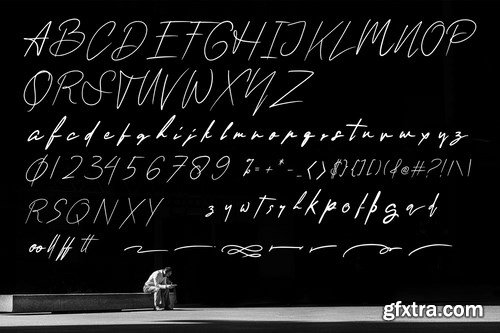 ABCDEFGHIJKLMNOP
QRSTUVWXYZ
abcdefghijklmnopqrstuvwxyz
0123456789 %=+*-_<>${}[]()&@#?!|\
RSQNXY zywtsyhkpolbgad
gfxtra.com